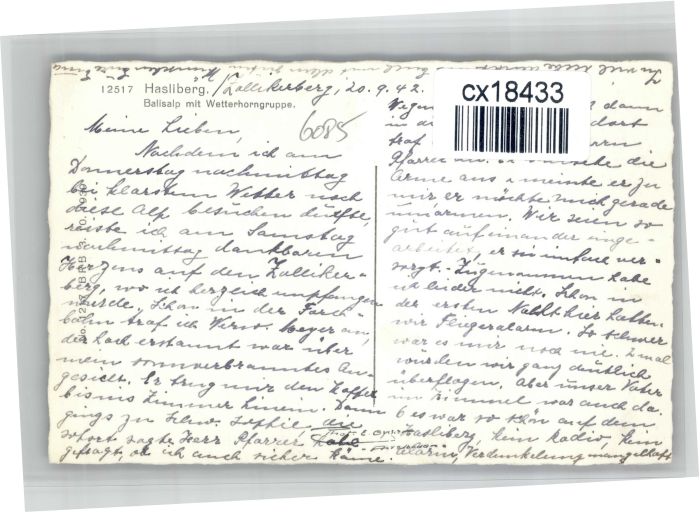 12517 Hasliberg.
Ballsalp mit Wetterhorngruppe.
Zollikerberg, 20.9.42.
6085
cx18433
Meine Lieben,
Nachdem ich am
Donnerstag nachmittag
bei klarstem Wetter noch
diese Alp besuchen durfte,
reiste ich am Samstag
nachmittag dankbaren
Herzens auf den Zolliker-
berg, wo ich herzlich empfangen
wurde. Schon in der Forch-
bahn traf ich Verw. Meyer an,
der doch erstaunt war über
mein sonnverbranntes An-
gesicht. Er trug mir den Koffer
bis ins Zimmer hinein. Dann
gings zu Schw. Sophie
sofort sagte Herr Pfarrer habe
gefragt, ob ich auch sicher käme.
dann
dort
traf
Pfarrer an. die
Arme aus & meinte er zu
mir er möchte mich gerade
umarmen. Wir seien so
gut aufeinander inge-
arbeitet, er sei einfach ver-
sorgt. Zugenommen habe
ich leider nicht. Schon in
der ersten Nacht hier hatten
wir Fliegeralarm. So schwer
war es mir noch nie. 2 mal
wurden wir ganz deutlich
überflogen. Aber unser Vater
im Himmel war auch da.
es war so schön auf dem
Hasliberg, kein Radio, kein
Alarm, Verdunkelung mangelhaft